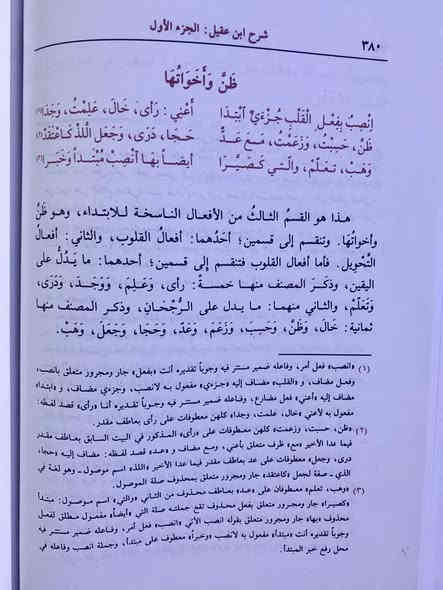 شرح ابن عقيل: الجزء الأول
٣٨٠
ظَنَّ وَأَخَوَاتُهَا
اِنْصِبْ بِفِعْلِ الْقَلْبِ جُزْءَيْ ابْتِدَا أَعْنِي: رَأَى، خَالَ، عَلِمْتُ، وَجَدَا(١)
ظَنَّ، حَسِبْتُ، وَزَعَمْتُ، مَعَ عَدّْ حَجَا، دَرَى، وَجَعَلَ اللَّذْ كَاعْتَقَدْ(٢)
وَهَبْ، تَعَلَّمْ، وَالَّتِي كَصَيَّرَا أَيْضاً بِهَا انْصِبْ مُبْتَدَأً وَخَبَرَا(٣)
هذا هو القسمُ الثالثُ من الأفعال الناسخة للابتداء، وهو ظَنَّ
وأخواتُهَا. وتنقسم إلى قسمين؛ أحَدُهما: أفعالُ القلوب، والثاني: أفعالُ
التَّحْوِيل. فأما أفعال القلوب فتنقسم إلى قسمين؛ أحدهما: ما يَدُلُّ على
اليقين، وذكَرَ المصنف منها خمسةً: رأى، وَعَلِمَ، وَوَجَدَ، وَدَرَى،
وَتَعَلَّمْ، والثاني منهما: ما يدل على الرُّجْحَانِ، وذكر المصنف منها
ثمانية: خَالَ، وَظَنَّ، وَحَسِبَ، وَزَعَمَ، وَعَدَّ، وَحَجَا، وَجَعَلَ، وَهَبْ.
(١) «انصب» فعل أمر، وفاعله ضمير مستتر فيه وجوباً تقديره أنت «بفعل» جار ومجرور متعلق بانصب،
وفعل مضاف، و «القلب» مضاف إليه «جزءي» مفعول به لانصب، وجزءي مضاف، و «ابتدا»
مضاف إليه «أعني» فعل مضارع، وفاعله ضمير مستتر فيه وجوباً تقديره أنا «رأى» قصد لفظه:
مفعول به لأعني «خال، علمت، وجدا» كلهن معطوفات على رأى بعاطف مقدر.
(٢) «ظن، حسبت، وزعمت» كلهن معطوفات على «رأى» المذكور في البيت السابق بعاطف مقدر
فيما عدا الأخير «مع» ظرف متعلق بأعني، ومع مضاف و «عد» قصد لفظه: مضاف إليه «حجا،
درى، وجعل» معطوفات على عد بعاطف مقدر فيما عدا الأخير «اللذ» اسم موصول ـ وهو لغة في
الذي ـ صفة لجعل «كاعتقد» جار ومجرور متعلق بمحذوف صلة الموصول.
(٣) «وهب، تعلم» معطوفان على «عد» بعاطف محذوف من الثاني «والتي» اسم موصول: مبتدأ
«كصيرا» جار ومجرور متعلق بفعل محذوف تقع جملته صلة التي «أيضاً» مفعول مطلق لفعل
محذوف «بها» جار ومجرور متعلق بقوله انصب الآتي «انصب» فعل أمر، وفاعله ضمير مستتر فيه
وجوباً تقديره أنت «مبتدأ» مفعول به لانصب «وخبرا» معطوف على مبتدأ، وجملة انصب وفاعله في
محل رفع خبر المبتدأ.